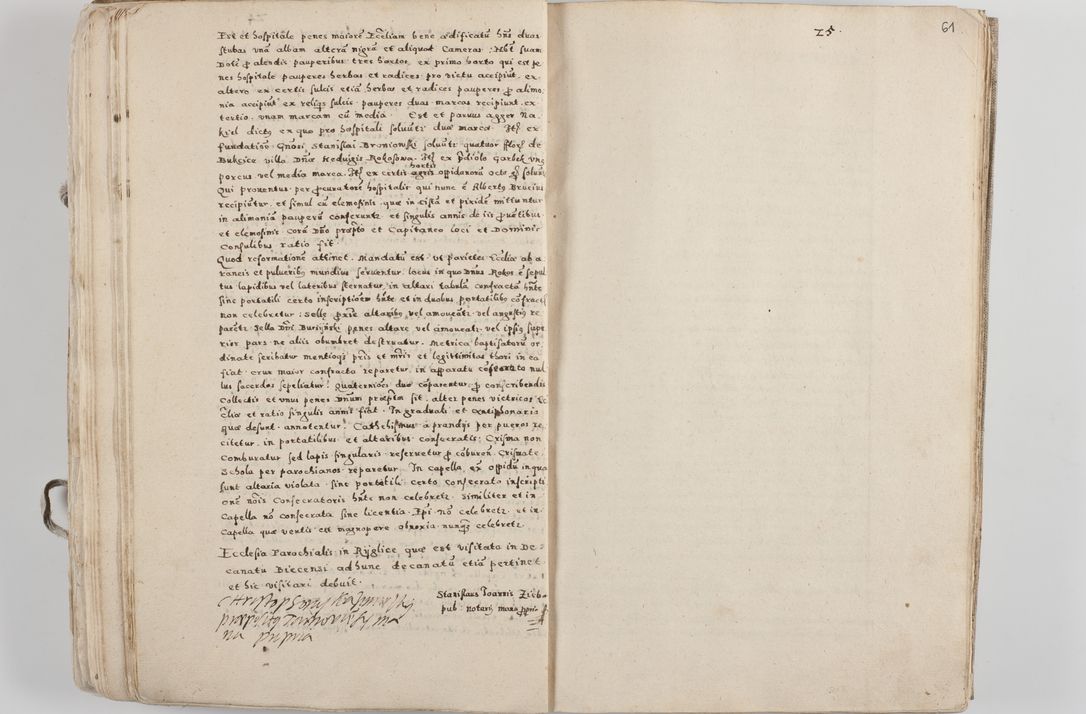 Est et hospitale penes maiorē Eccliam bene ædificatū hns duas
stubas unā albam alterā nigrā et aliquot Cameras. Hbt suam
Dotē ꝓ alendis pauperibus tres hortos, ex primo horto qui est pe
nes hospitale pauperes herbas et radices pro victu accipiūt. ex
altero ex certis sulcis etiā herbas et radices pauperes ꝓ alimo.
nia accipiūt ex reliqs sulcis pauperes duas marcas recipiunt. ex
tertio unam marcam cū media. Est et parvus agger Na
kiel dictꝫ ex quo pro hospitali solvūtr duæ marcæ. Itē ex
fundatiōe Gnosi Stanislai Broniowski solvūtr quatuor flor de
Dnæ Hedvigis Rokosowa. Itē ex Garbek unꝫ
porcus vel media marca. Itē ex certis agris hortis oppidanorū octo gr solvūtr
Qui proventus per ꝓcuratorē hospitalis qui nunc ē Albertꝫ Brucius
recipiūtur et simul cū elemosinis quæ in cista et pixide mittuntur
in alimoniā pauperū conferuntr et singulis annis de iis ꝓventibus
et elemosinis corā Dno præpto et Capitaneo loci et Dominis
Consulibus ratio fit.
Quod reformationē attinet. Mandatū est ut parietes Eccliæ ab a
raneis et pulveribꝫ mundius serventur. locus in quo Dnus Rokos ē sepul
tus lapidibus vel lateribus sternatur, in altari tabulā confractā hnte
sine portatili certo inscriptiōem hnte et in duobus portatilibꝫ cōfractis
non celebretur: Sellæ prie altaribꝫ vel amoveātr vel angustiꝫ re
parētr. Sella Dni penes altare vel amoveatr vel ipsiꝫ supe
rior pars ne aliis obumbret destruatur. Metrica baptisatorū or
dinate scribatur mentioqꝫ pris et mris et legittimitas thori in ea
fiat. crux maior confracta reparetur, in apparatu nul
lus sacerdos sepeliatur. Quaterniōes duo cōparentur ꝓ conscribendis
Collectis et unus penes Dnum præptm sit, alter penes victricos Ec
cliæ et ratio singulis annis fiat. In graduali et Antiphonario
quæ desunt annotentur. Cathechismus a prandijs per pueros re
citetur. in portatilibus et altaribus consecratis Crisma non
Comburatur sed lapis singularis reservetur ꝓ cōburen. Crismate.
Schola per parochianos reparetur. In capella, ex oppidū in qua
sunt altaria violata sine portatili certo consecrato inscripti
onē nois Consecratoris hnte non celebretr. Similiter et in
Capella nō consecrata sine licentia Epi nō celebretr. et in
Capella quæ ventis est magnopere obnoxia nunqꝫ celebretr.
Ecclesia Parochialis in Ryglice quæ est visitata in De
canatu Biecensi ad hunc decanatū etiā pertinet
et hic visitari debuit.
præpositꝫ Tarnoviēsis ma
nu propria
Stanislaus Joannis
pub: notariꝫ manu ppria
25.
61